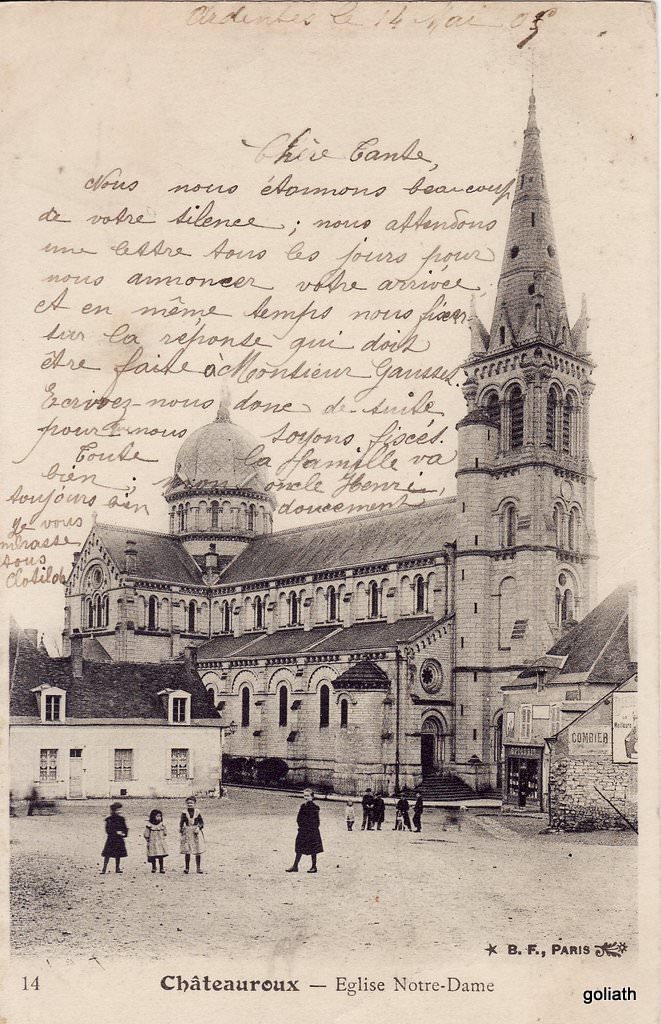 Ardentes le 14 Mai 05
Chère Tante,
Nous nous étonnons beaucoup
de votre silence ; nous attendons
une lettre tous les jours pour
nous annoncer votre arrivée
et en même temps nous fixer
sur la réponse qui doit
être faite à Monsieur
Ecrivez-nous donc de suite
pour nous soyons fiscés.
Toute la famille va
bien ; mon oncle Henri
toujours bien doucement
Je vous
embrasse
tous
Clotilde
COMBIER
EPICERIE
B. F., PARIS
14 Châteauroux — Eglise Notre-Dame
goliath